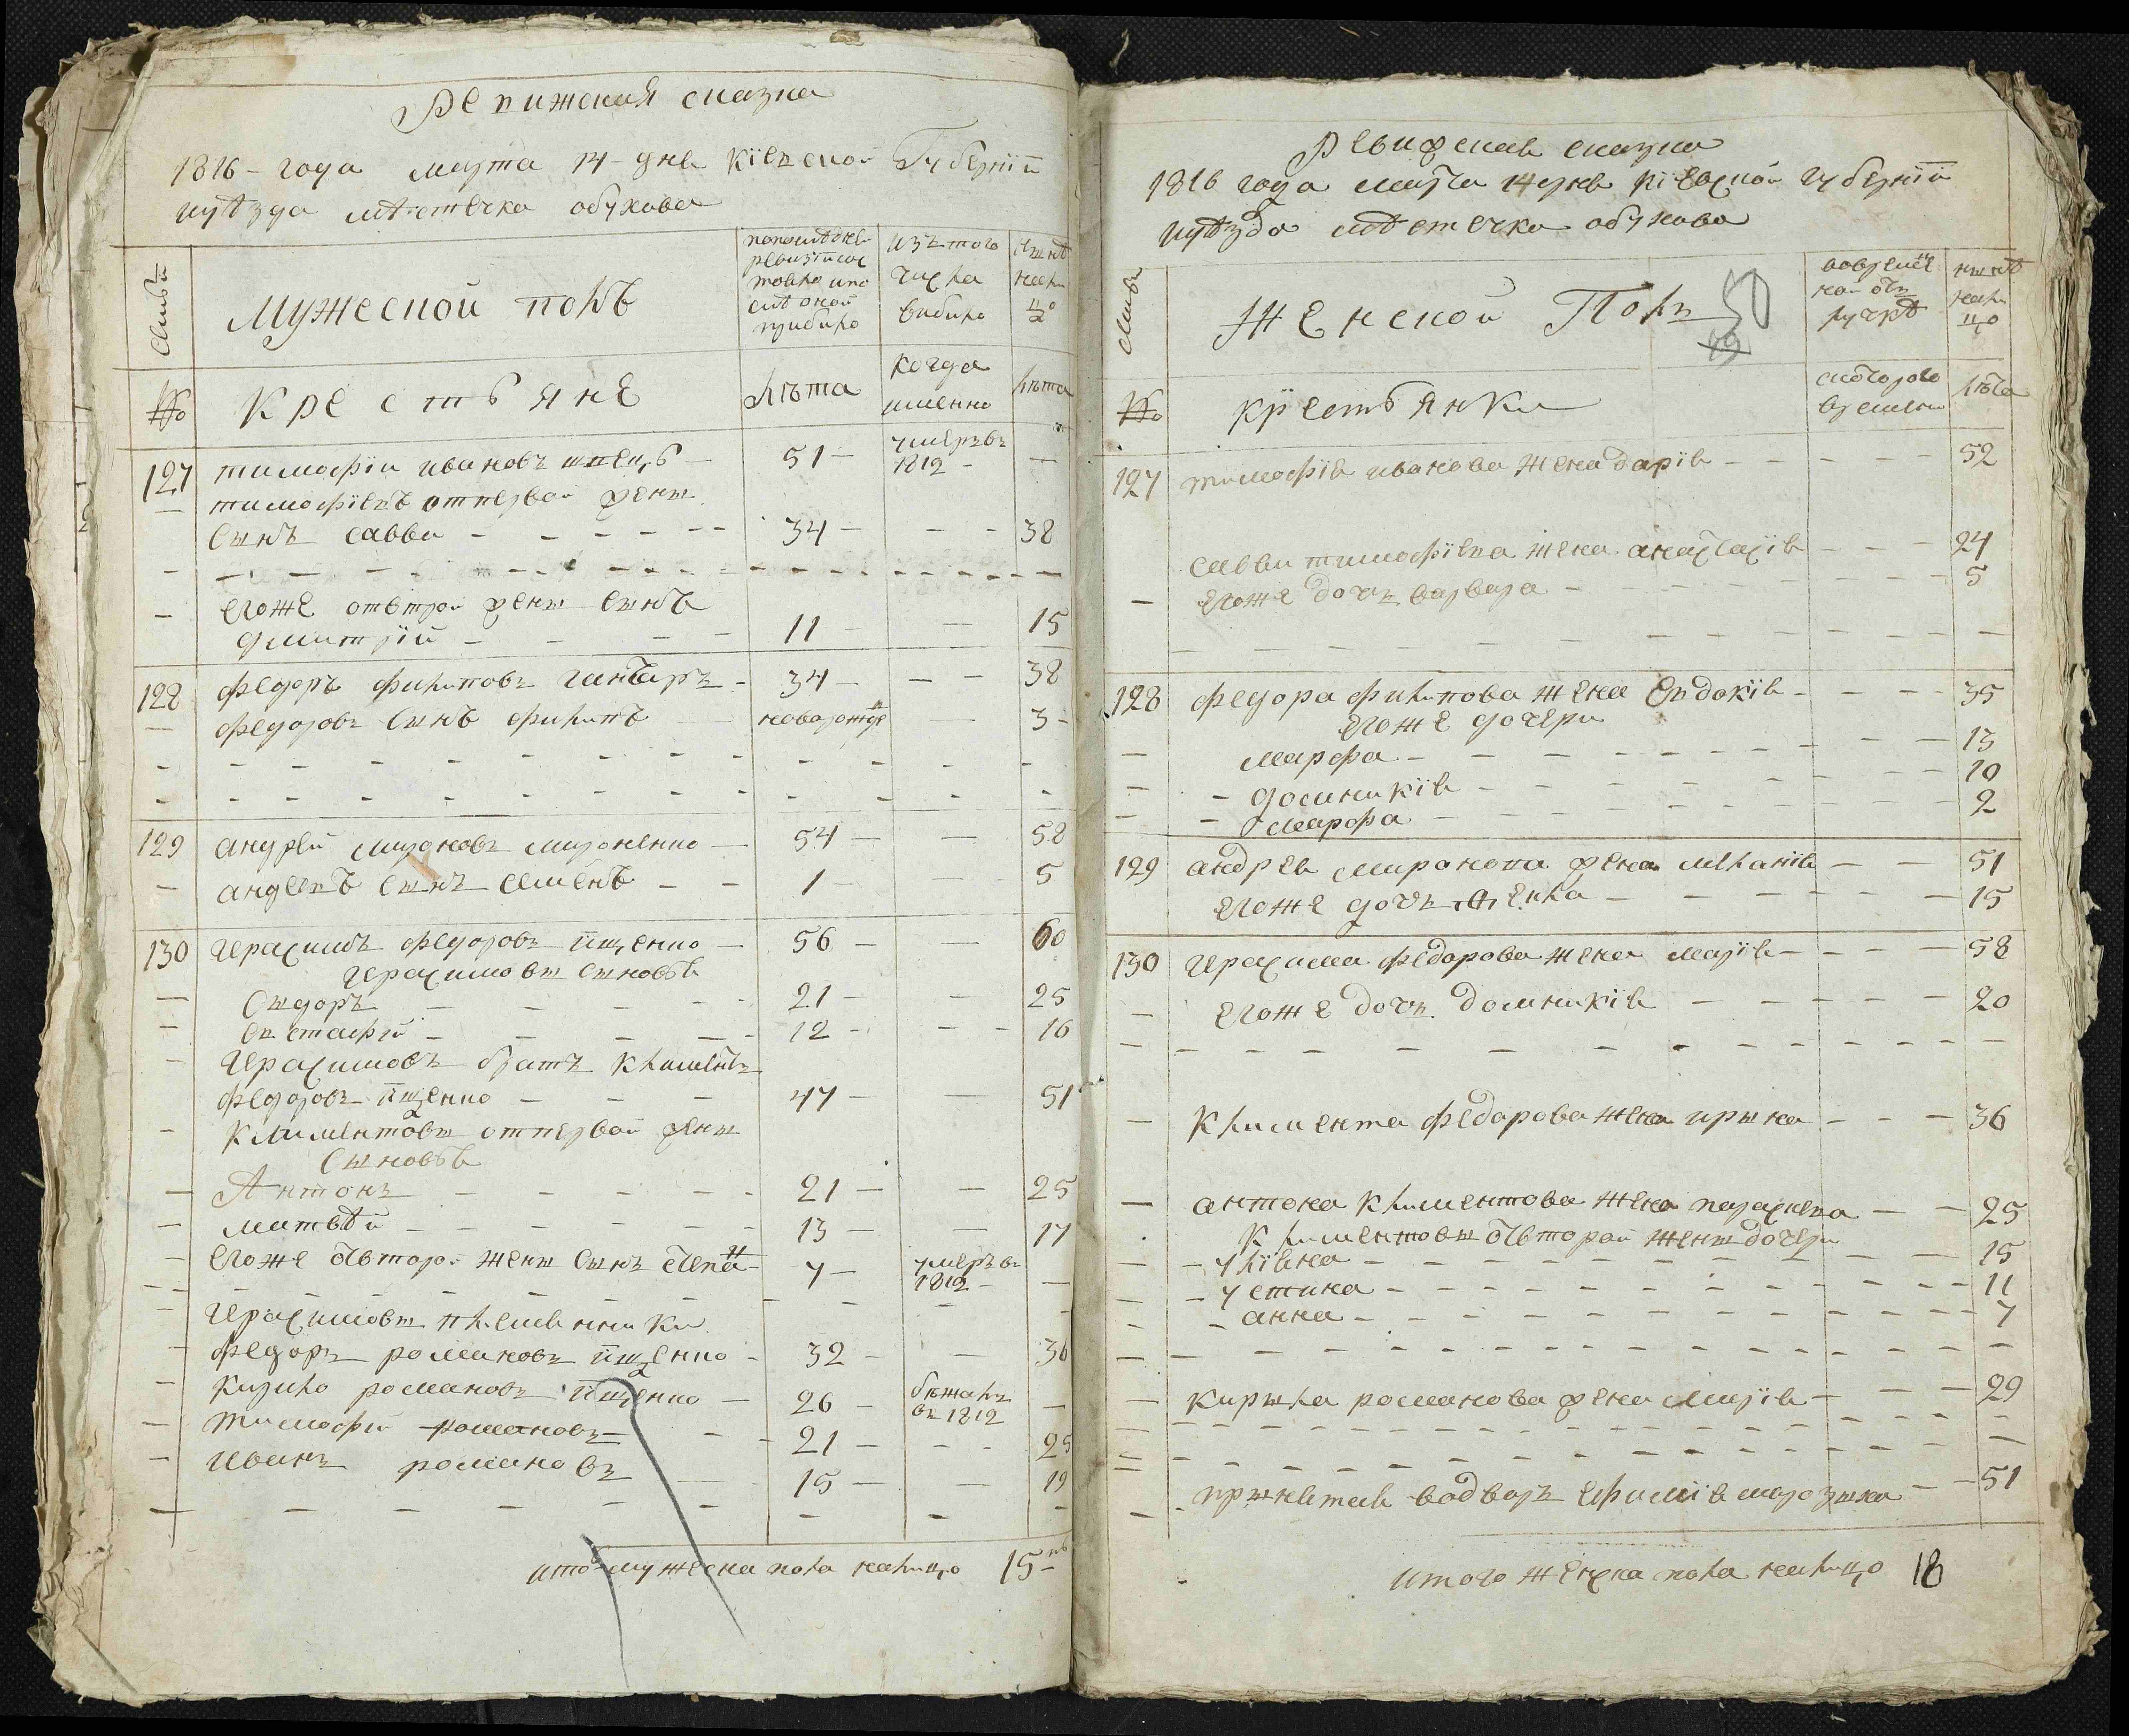 Ревижская сказка
1816 - года марта 14 - дня Кіевской Губерніи
иуѣзда мѣстечка обухова
семьи
Мужеской полъ
попослѣдней ревизіи состояло ипослѣ оной прибыло
изъ того числа выбыло
нынѣ налицо
№
Крестьяне
лѣта
когда именно
лѣта
127 тимофѣи ивановъ швецъ — 51 — умеръ въ 1812 — —
— тимофѣевъ отпервой жены
сынъ савва — 34 — — 38
— егоже отвтрой жены сынъ
дмитрій — 11 — 15
128 федоръ филиповъ ганчаръ — 34 — — 38
— федоровъ сынъ филипъ новорожде — 3 —
129 андрей мироновъ мироненко — 54 — — 58
— андреевъ сынъ семенъ — 1 — 5
130 герасимъ федоровъ ищенко — 56 — — 60
герасимовы сыновья
— сыдоръ — 21 — — 25
— евстафій — 12 — — 16
— герасимовъ братъ климентъ
федоровъ ищенко — 47 — — 51
— климентовы отпервой жены
сыновья
— Антонъ — 21 — — 25
— матвѣй — 13 — — 17
— егоже отвторой жены сынъ степа — 7 — умеръ въ 1812 — —
— герасимовы племянники
— федоръ романовъ ищенко — 32 — — 36
— кирило романовъ ищенко — 26 — бежалъ въ 1812 —
— тимофѣй романовъ — 21 — — 25
— иванъ романовъ — 15 — — 19
итого мужеска пола налицо 15
Ревижская сказка
1816 года марта 14 дня кіевской губерніи
иуѣзда мѣстечка обухова
семьи
Женской Полъ
50
49
вовременной отлучкѣ
нынѣ налицо
№
крестьянки
скоторого времени
лѣта
127 тимофія иванова жена дарія — 52
саввы тимофіева жена анастасія — 24
— егоже дочь варвара — 5
128 федора филипова жена евдокія — 35
егоже дочери
— марфа — 13
— домникія — 10
— марфа — 2
129 андрея миронова жена меланія — 51
егоже дочь — 15
130 герасима федорова жена марія — 58
— егоже дочь домникія — 20
— климента федорова жена ирына — 36
— антона климентова жена параскева — 25
климентовы отвторой жены дочери
— уліяна — 15
— устина — 11
— анна — 7
— кирыла романова жена марія — 29
— прынятая водворъ ефимія — 51
итого женска пола налицо 18